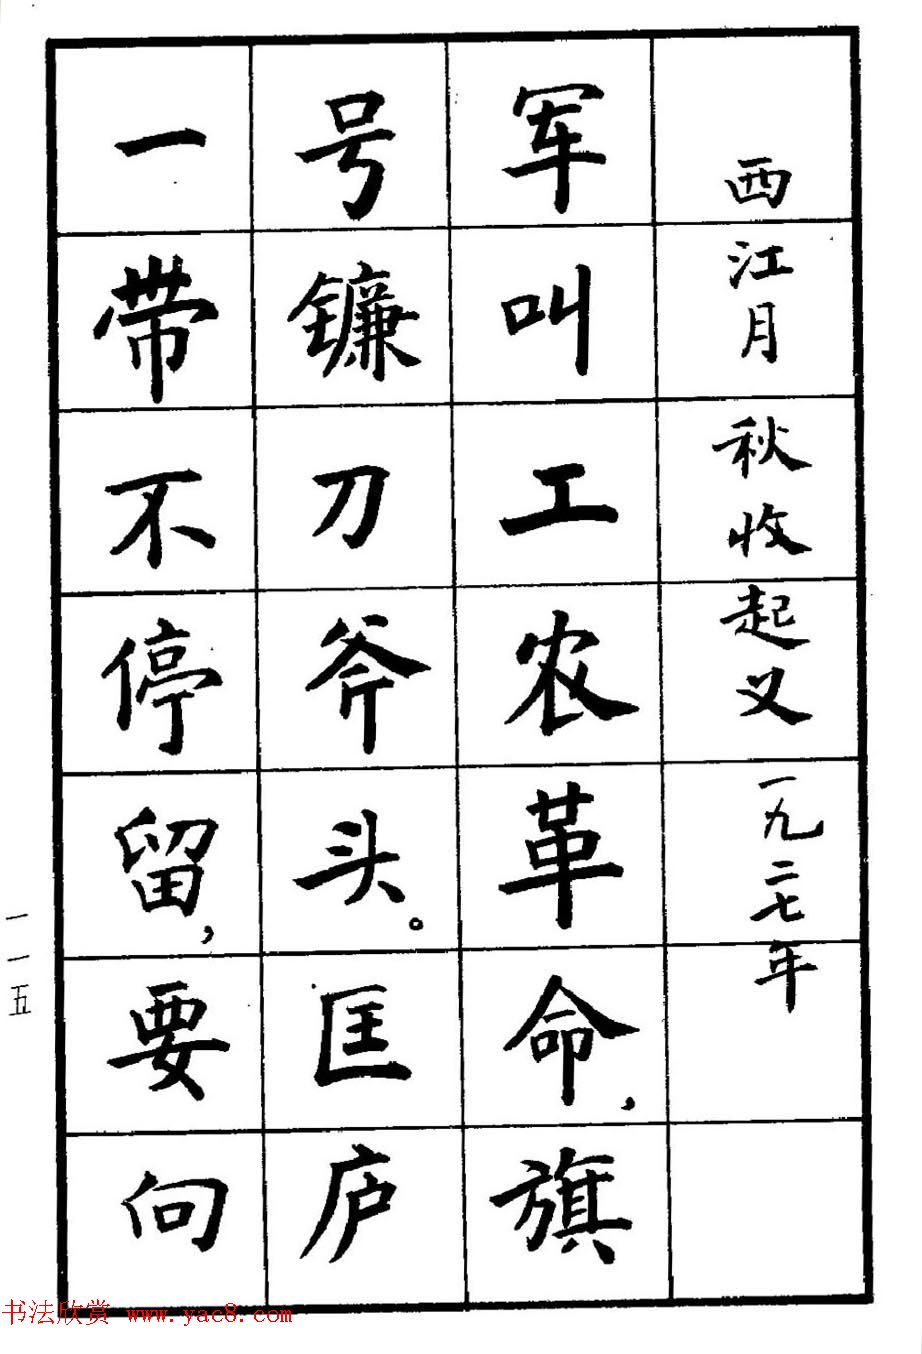 西江月 秋收起义 一九二七年
军叫工农革命,旗
号镰刀斧头。匡庐
一带不停留,要向
一一五
书法欣赏 www.yac8.com